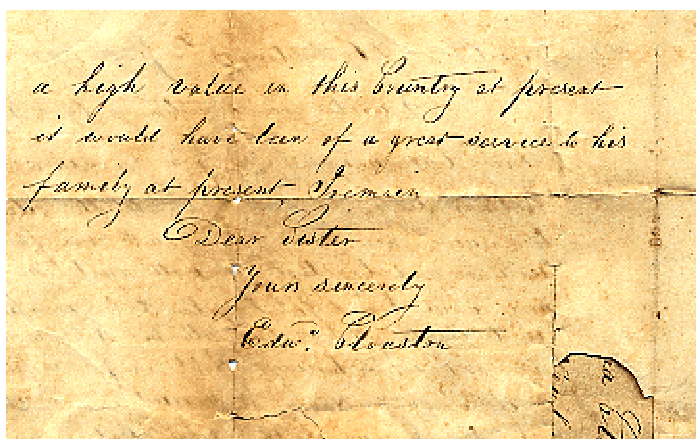 a high value in this Country at present
it would have been of a great service to his
family at present I remain
Dear Sister
Yours sincerely
Edwd.